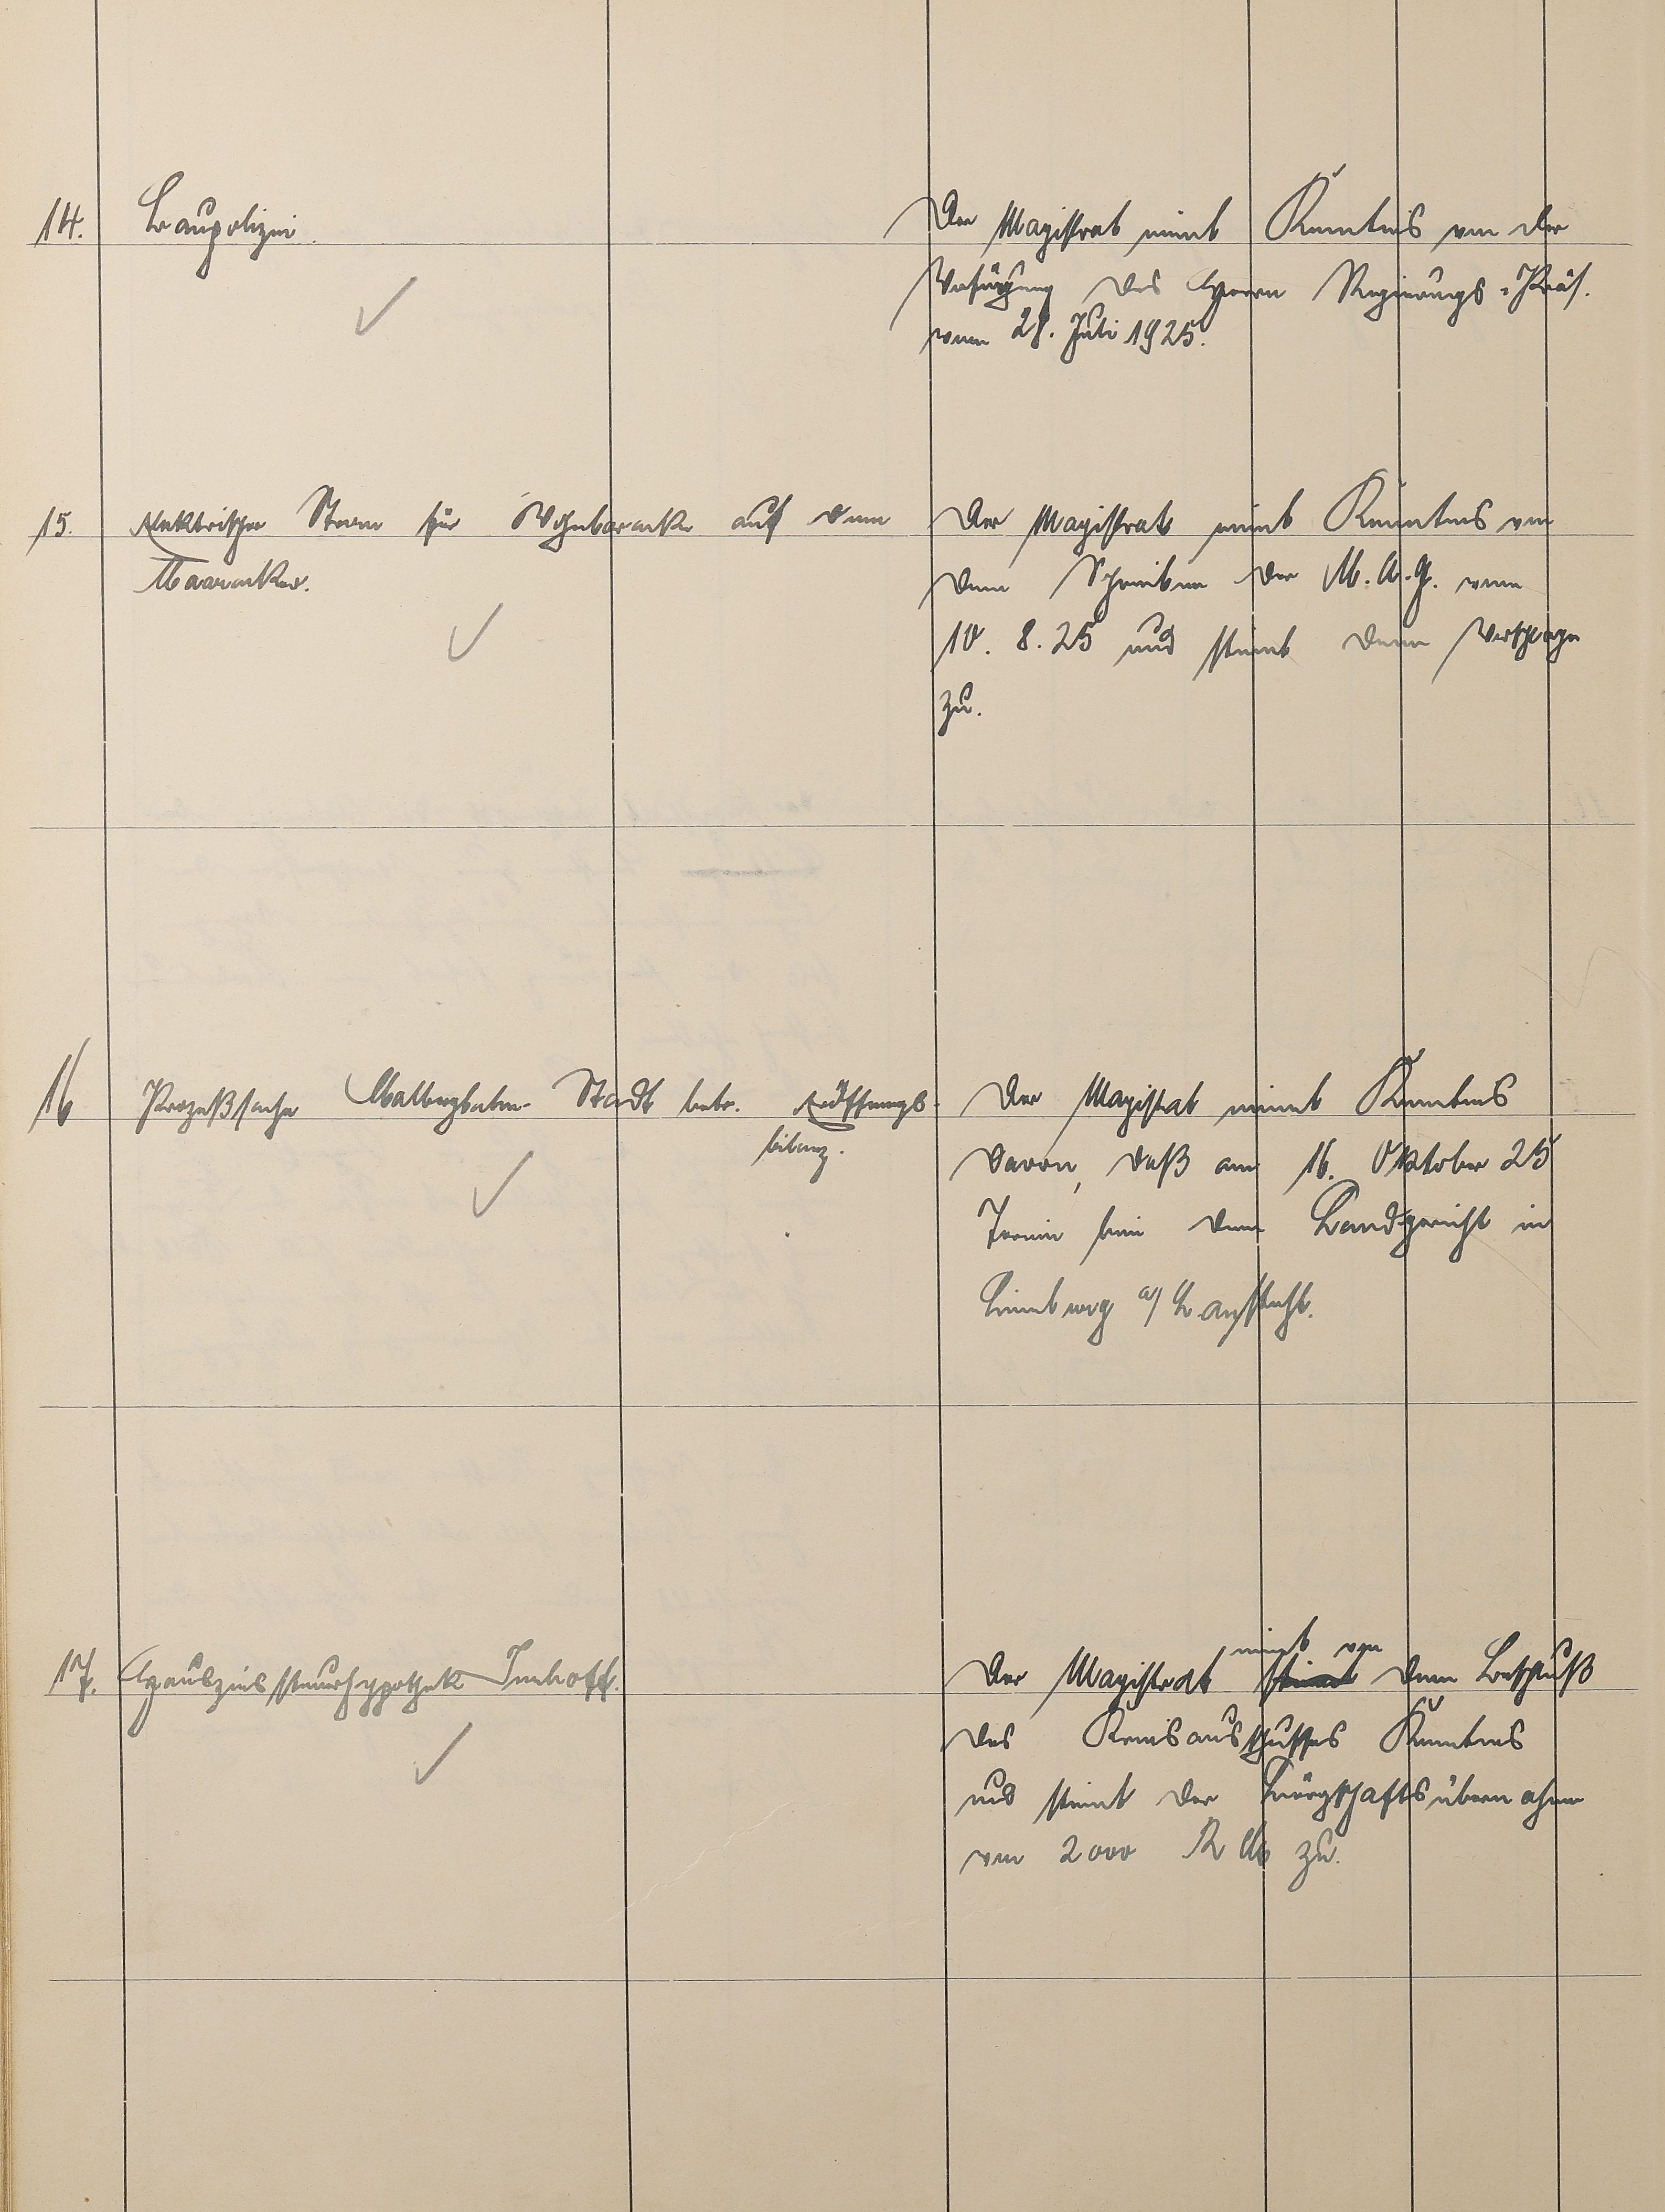 14. Baupolizei.
Der Magistrat nimt Kenntnis von der
Verfügung des Herrn Regierungs-Präs.
vom 28. Juli 1925.
15. Elektrischer Strom für Wohnbaracke auf dem
Maaracker.
Der Magistrat nimt Kenntnis von
dem Schreiben der M.A.G. vom
10. 8. 25 und stimt dem Vorschlage
zu.
16 Prozeßsache Malbergbahn - Stadt betr. Eröffnungs-
bilanz.
Der Magistrat nimt Kenntnis
davon, daß am 16. Oktober 25
Termin bei dem Landgericht in
Limburg a/L ansteht.
17. Hauszinssteuerhypothek Imhoff.
nimt von
Der Magistrat stimt dem Beschluß
des Kreisausschusses Kenntnis
und stimt der Bürgschaftsübernahme
von 2000 RM zu.